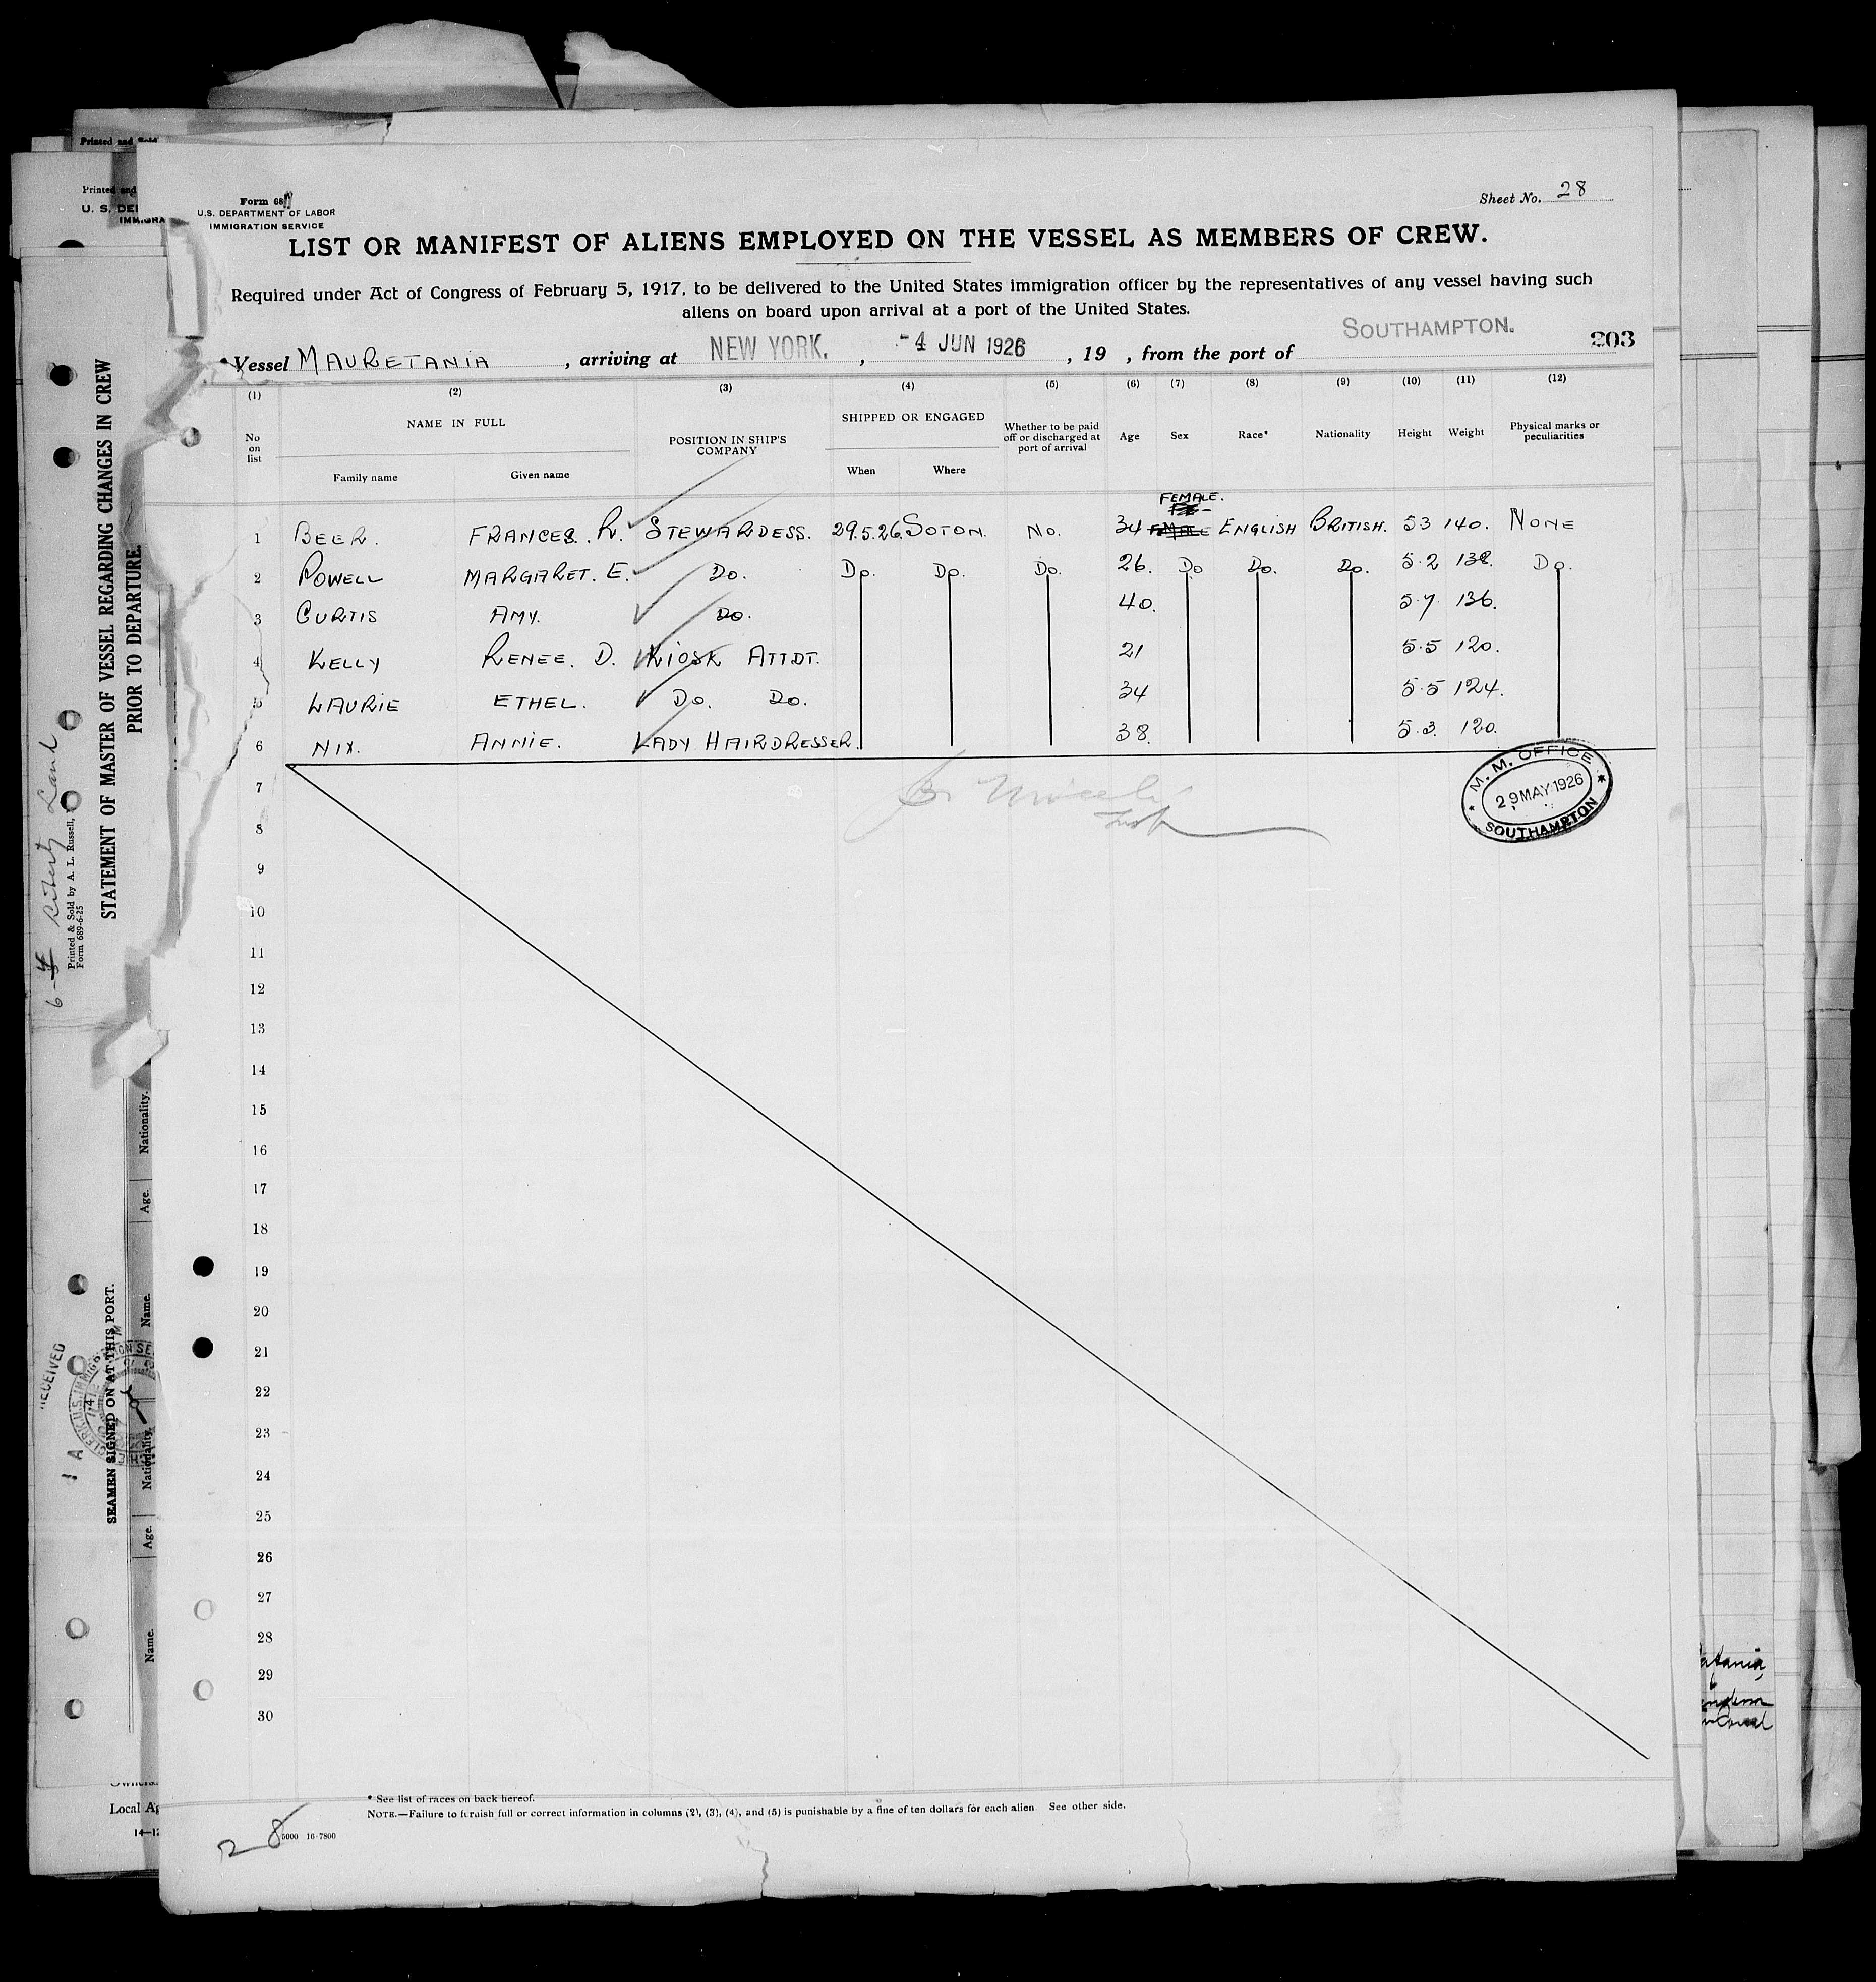 Form 68
U.S. DEPARTMENT OF LABOR
IMMIGRATION SERVICE
Sheet No. 28
LIST OR MANIFEST OF ALIENS EMPLOYED ON THE VESSEL AS MEMBERS OF CREW.
Required under Act of Congress of February 5, 1917, to be delivered to the United States immigration officer by the representatives of any vessel having such
aliens on board upon arrival at a port of the United States.
Vessel MAURETANIA, arriving at NEW YORK., -4 JUN 1926, 19 , from the port of SOUTHAMPTON. 203
(1) (2) (3) (4) (5) (6) (7) (8) (9) (10) (11) (12)
No on list NAME IN FULL Family name Given name POSITION IN SHIP'S COMPANY SHIPPED OR ENGAGED When Where Whether to be paid off or discharged at port of arrival Age Sex Race* Nationality Height Weight Physical marks or peculiarities
FEMALE.
1 BEER. FRANCES. R. STEWARDESS. 29.5.26. SOTON. No. 34 ENGLISH BRITISH. 53 140. NONE
2 POWELL MARGARET. E. Do. Do. Do. Do. 26. Do Do. Do. 5.2 138. Do.
3 CURTIS AMY. Do. 40. 5.7 136.
4 KELLY RENEE. D. KIOSK ATTDT. 21 5.5 120.
5 LAURIE ETHEL. Do. Do. 34 5.5 124.
6 NIX. ANNIE. LADY HAIRDRESSER. 38. 5.3. 120.
M. M. OFFICE
29 MAY 1926
SOUTHAMPTON
7
8
9
10
11
12
13
14
15
16
17
18
19
20
21
22
23
24
25
26
27
28
29
30
* See list of races on back hereof.
NOTE.—Failure to furnish full or correct information in columns (2), (3), (4), and (5) is punishable by a fine of ten dollars for each alien. See other side.
5000 16-7800
28
Printed and Sold
Printed and
U. S. DE
IMMIGRA
STATEMENT OF MASTER OF VESSEL REGARDING CHANGES IN CREW
PRIOR TO DEPARTURE.
Printed & Sold by A. L. Russell,
Form 689-6-25
SEAMEN SIGNED ON AT THIS PORT.
Name. Age. Nationality. Name. Age. Nationality.
RECEIVED
Local Ag
14—12